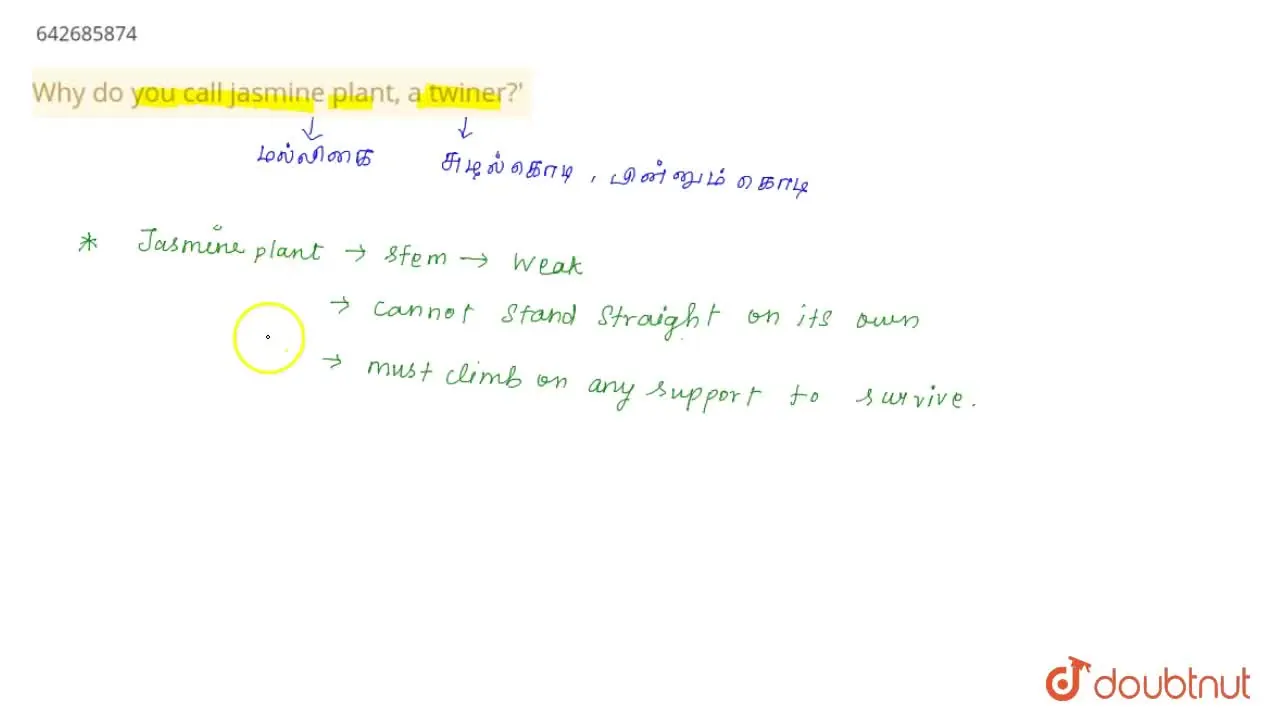 642685874
Why do you call jasmine plant, a twiner?'
மல்லிகை சுழல்கொடி , பின்னும் கொடி
* Jasmine plant → stem → weak
→ cannot stand straight on its own
→ must climb on any support to survive.
doubtnut